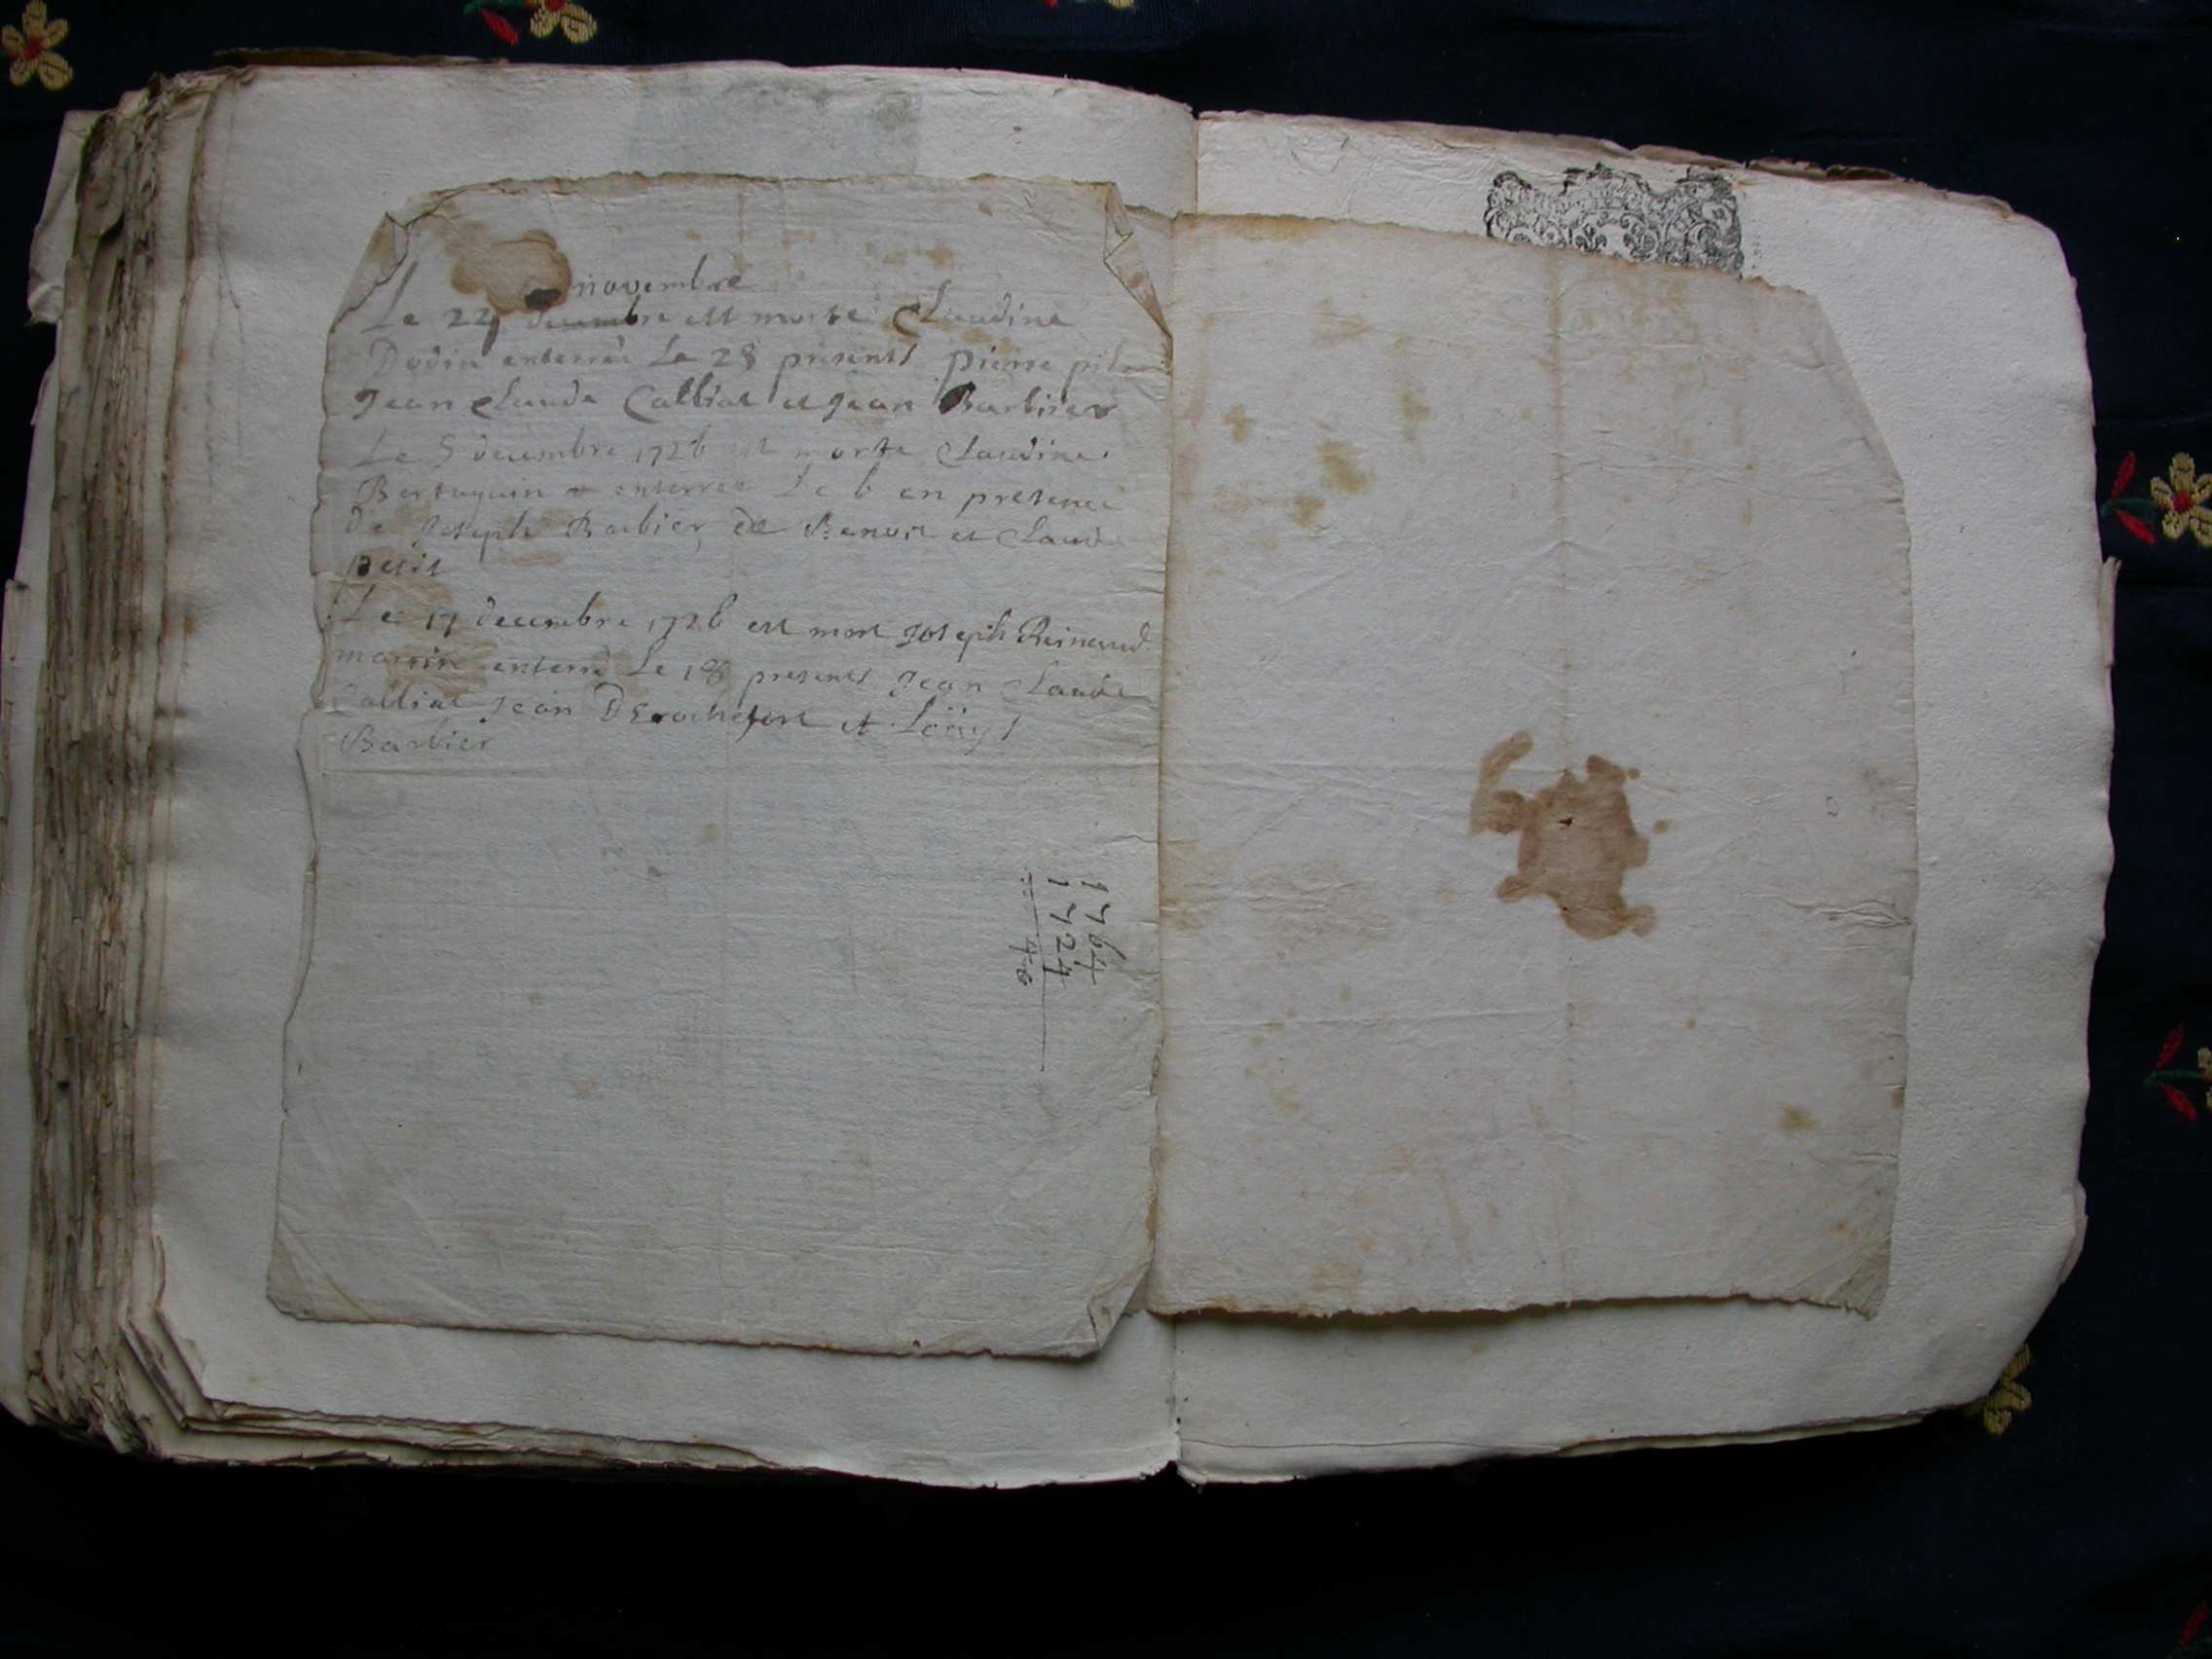 novembre
Le 27 decembre est morte Claudine
Dodin enterrée Le 28 presents pierre
Jean Claude Calliat et Jean Barbier
Le 5 decembre 1726 est morte Claudine
enterree Le 6 en presence
de Joseph Barbier, de Benoit et Claude
petit
Le 17 decembre 1726 est mort Joseph Reinaud
enterré Le 18 presents Jean Claude
Calliat Jean Derochefort et
Barbier
1764
1724
40